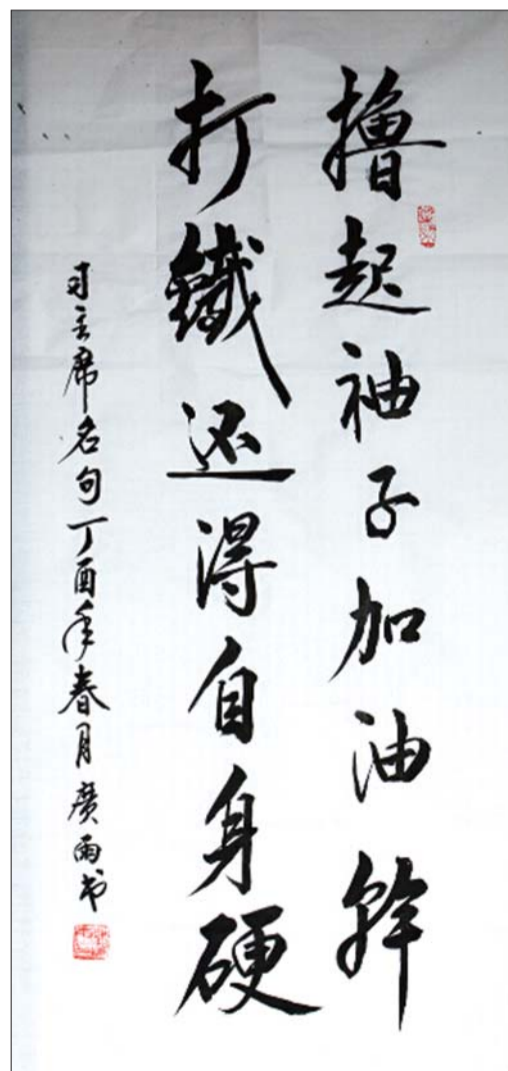 撸起袖子加油幹
打鐵还得自身硬
习主席名句丁酉年春月廣雨书